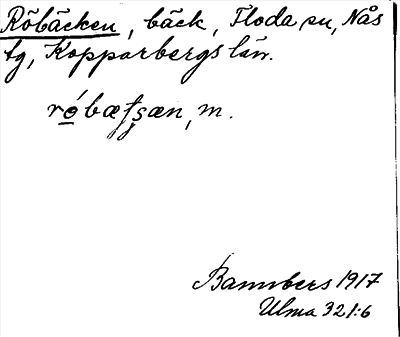 Röbäcken, bäck, Floda sn, Nås
tg, Kopparbergs län.
Bannbers 1917
Ulma 321:6